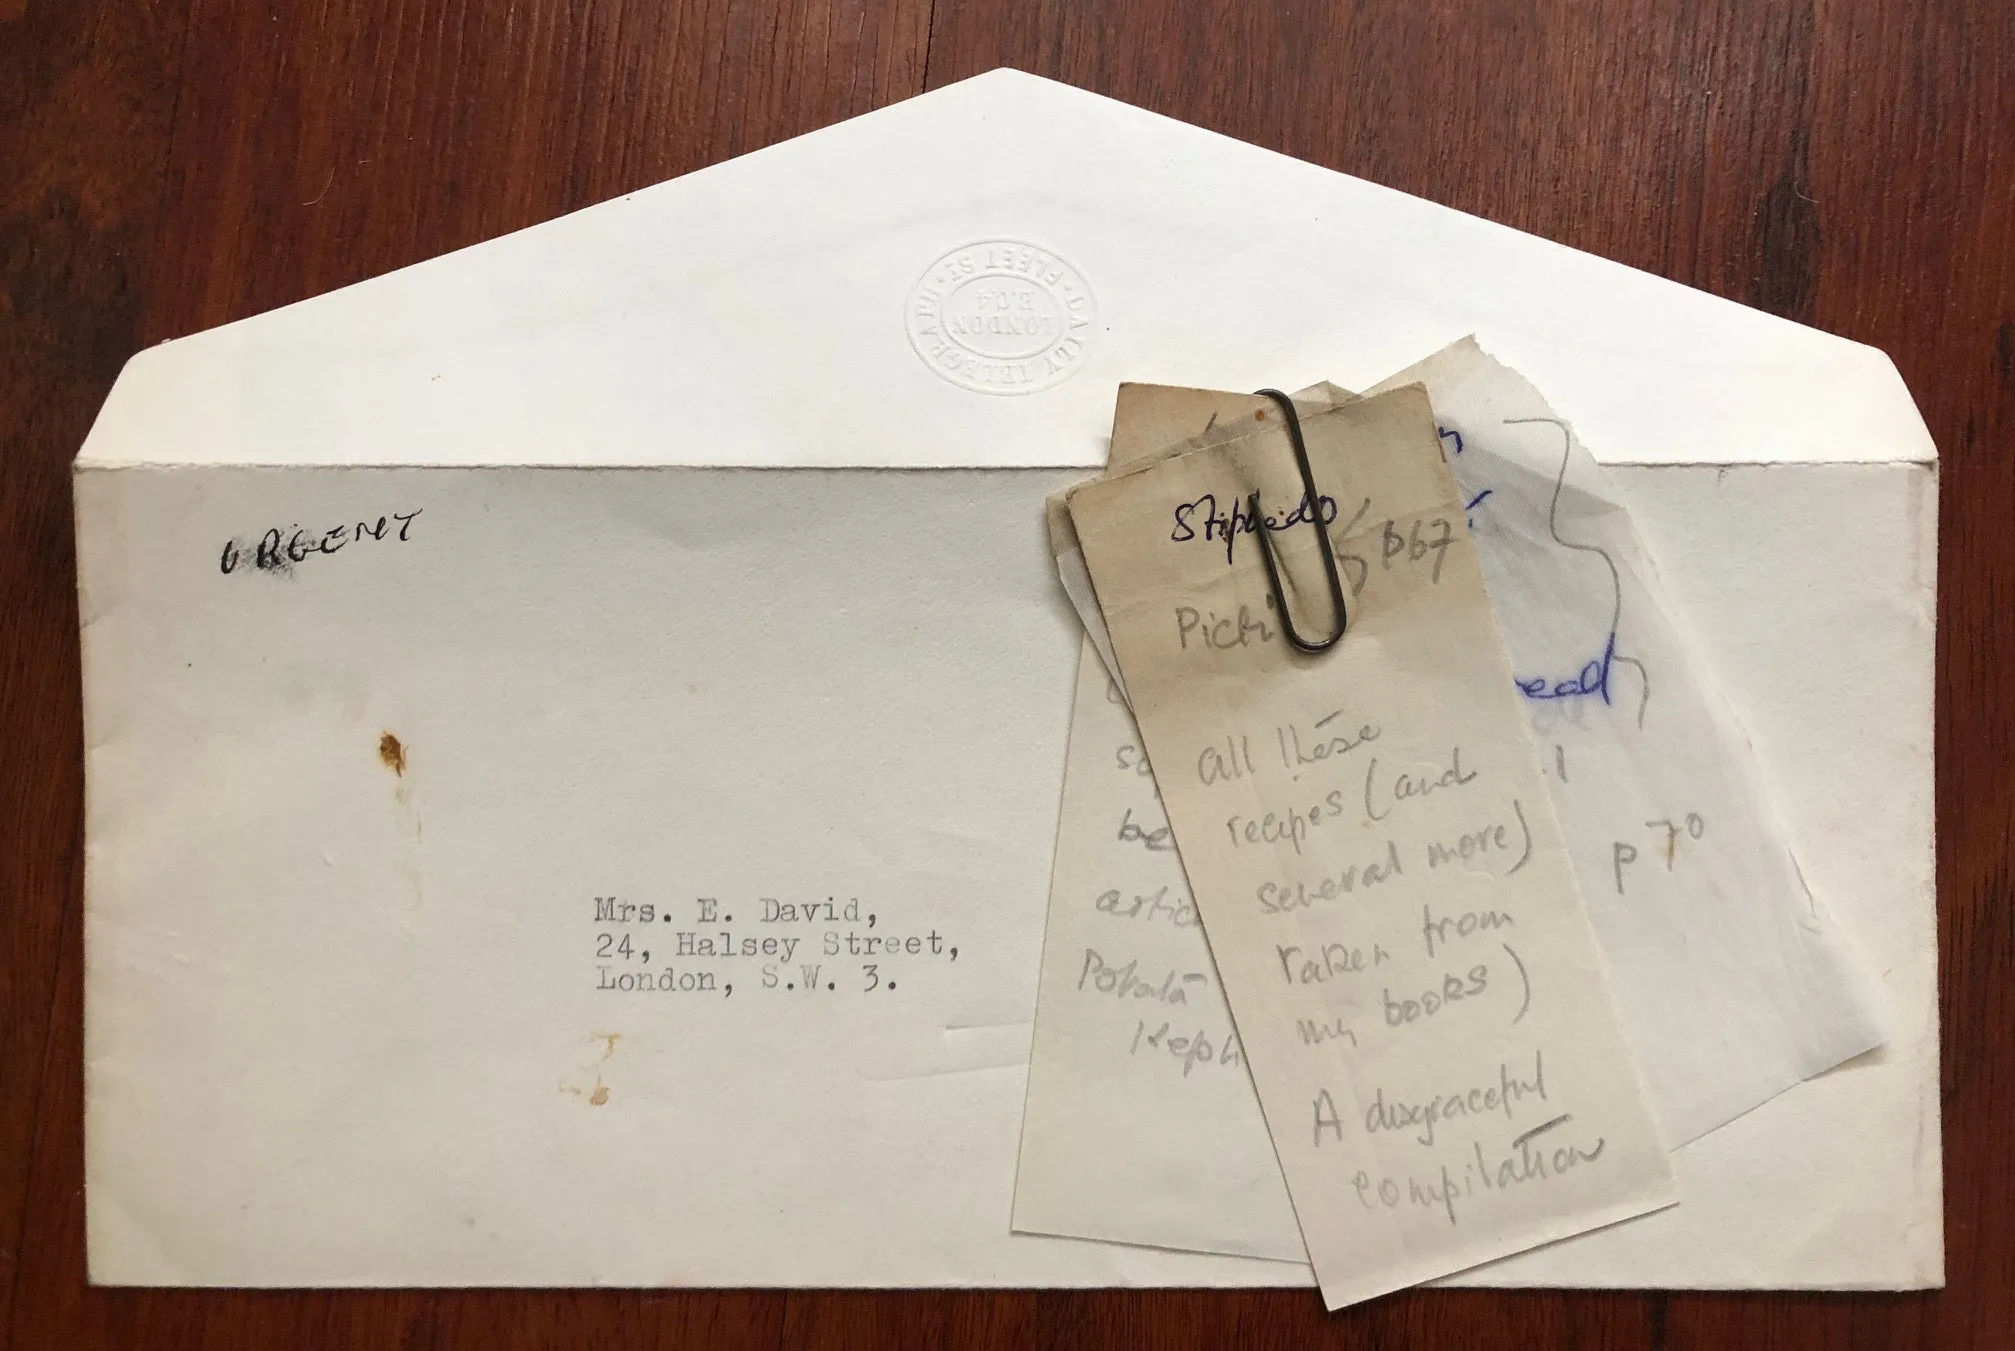 DAILY TELEGRAPH · FLEET ST. ·
LONDON
E.C.4
URGENT
Mrs. E. David,
24, Halsey Street,
London, S.W. 3.
p67
all these
recipes (and
several more)
taken from
my books)
A disgraceful
compilation
so
be
artic
ead
p 70